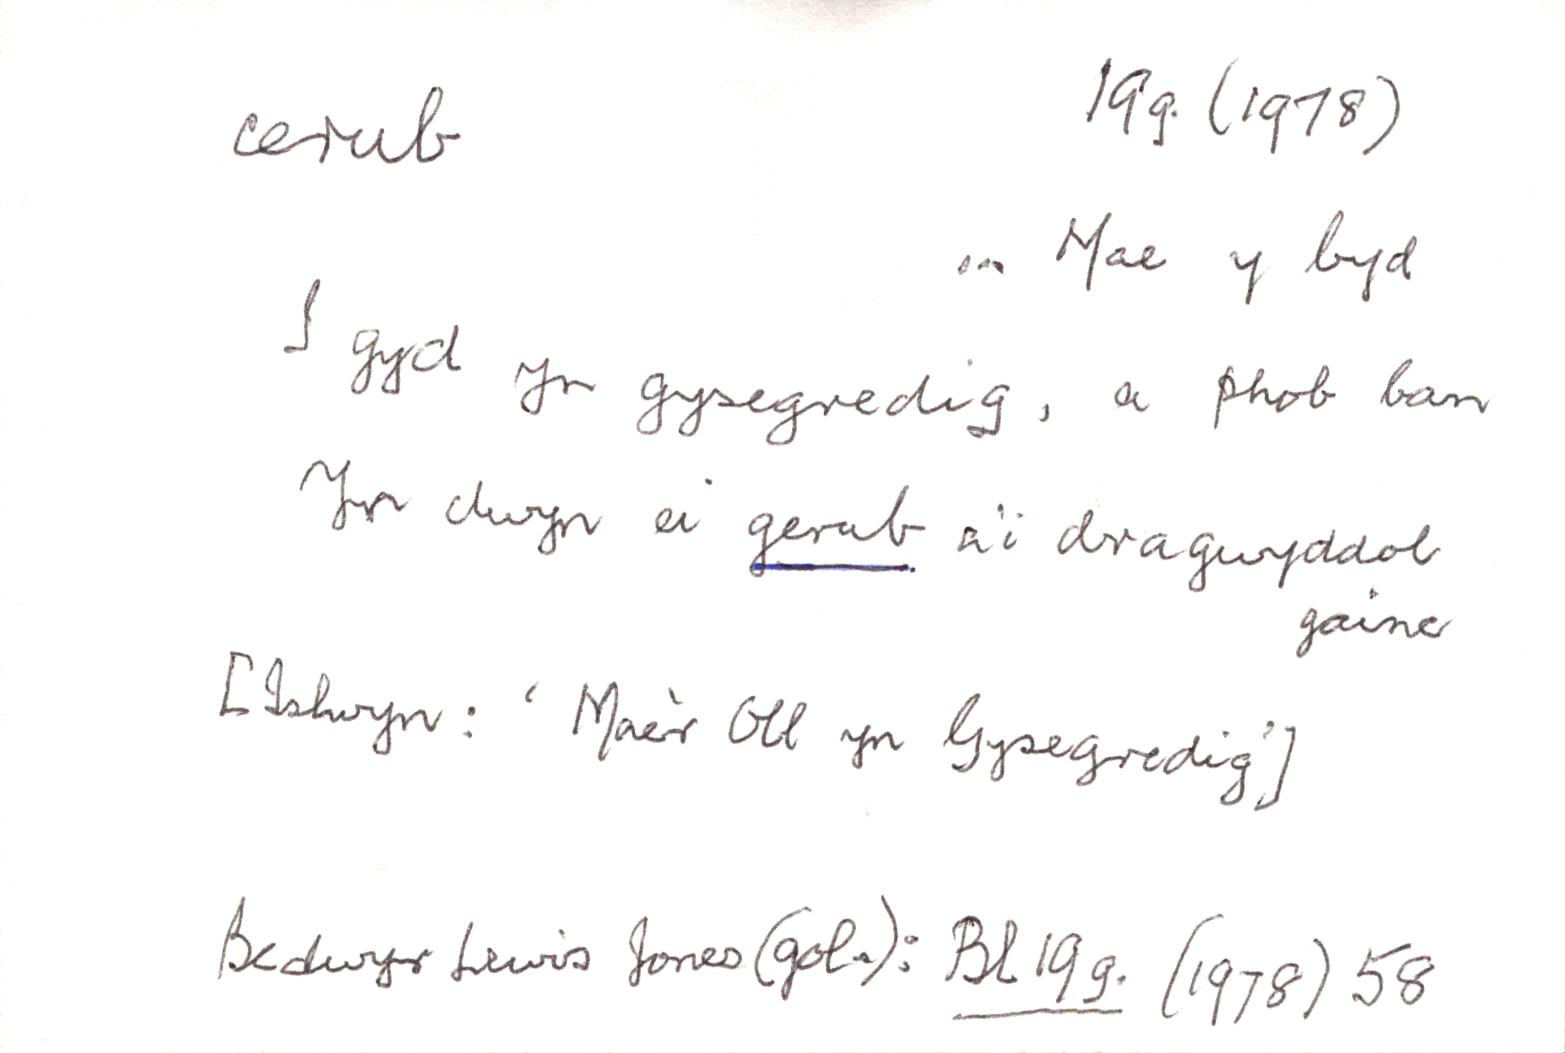 cerub 19g. (1978)
... Mae y byd
I gyd yn gysegredig, a phob ban
Yn dwyn ei gerub a'i dragwyddol
gainc
[Islwyn: 'Mae'r Oll yn Gysegredig']
Bedwyr Lewis Jones (gol.): Bl 19g. (1978) 58